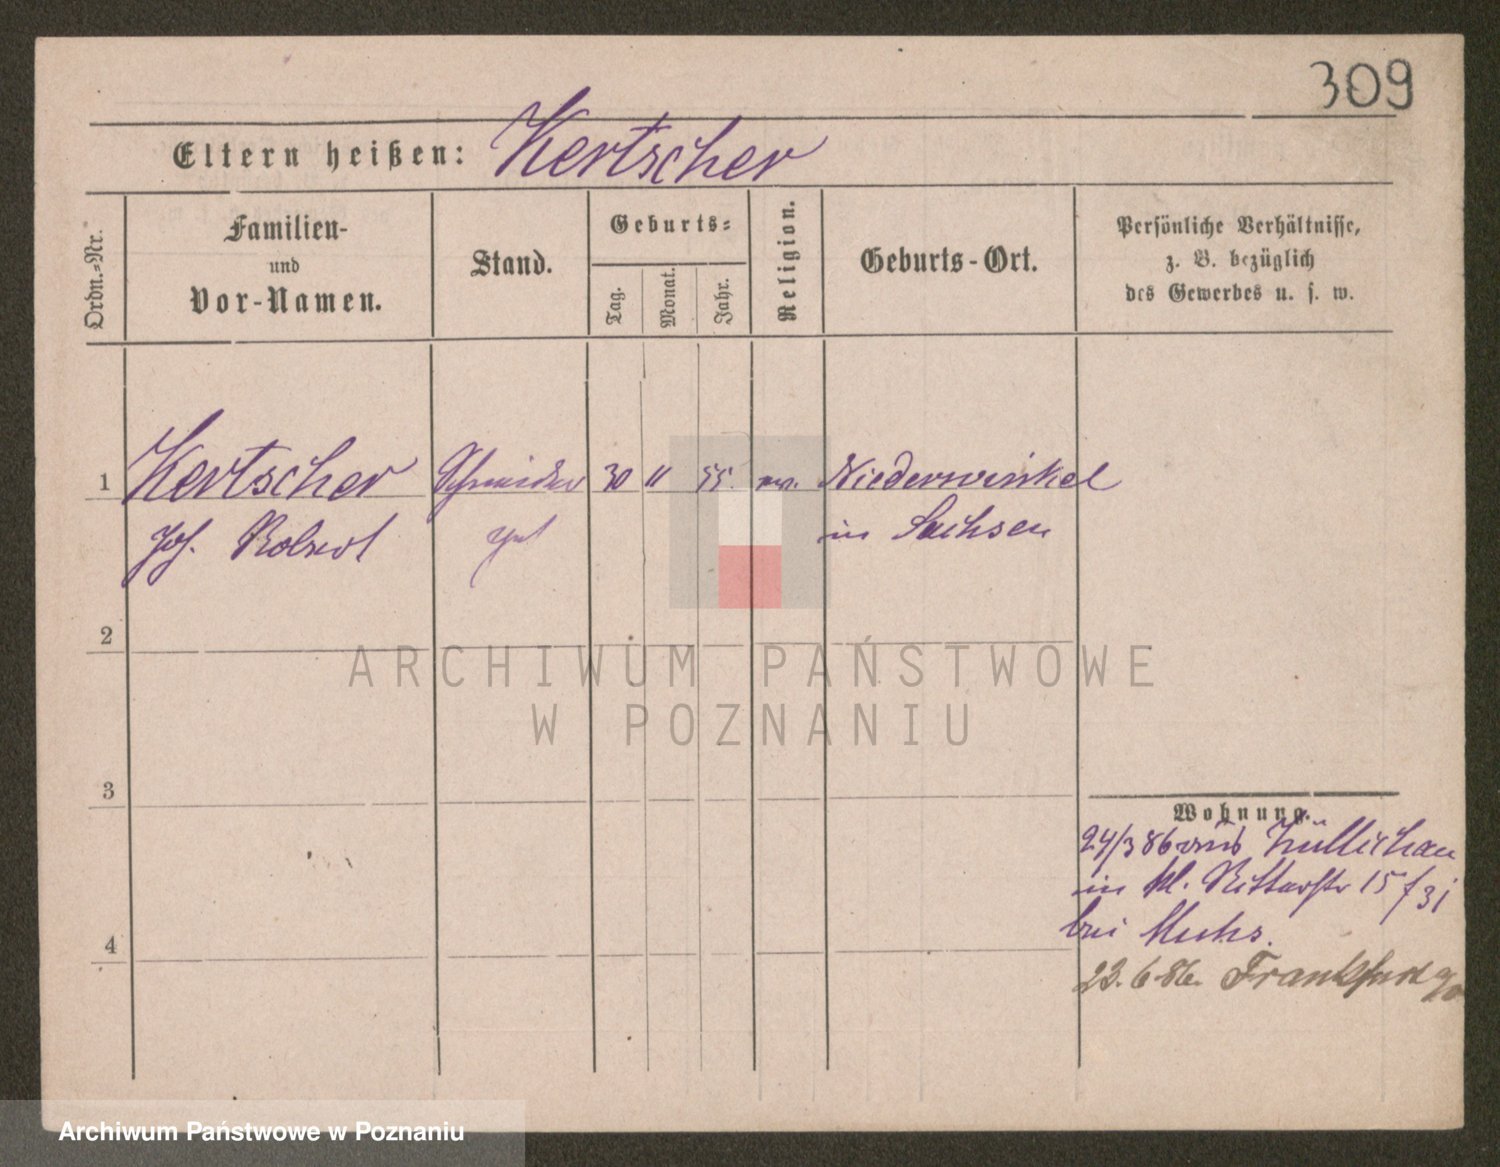 309
Eltern heißen: Kertscher
Ordn.=Nr.
Familien-
und
Vor-Namen.
Stand.
Geburts=
Tag.
Monat.
Jahr.
Religion.
Geburts-Ort.
Persönliche Verhältnisse,
z. B. bezüglich
des Gewerbes u. s. w.
1 Kertscher Schneider 30 11 55. ev. Niederwinkel
Joh. Robert in Sachsen
2
ARCHIWUM PAŃSTWOWE
W POZNANIU
3
Wohnung.
24/3 86 aus Züllichau
in kl. Ritterstr 15
bei Muhs.
4
23.6.86. Frankfurt a/o
Archiwum Państwowe w Poznaniu